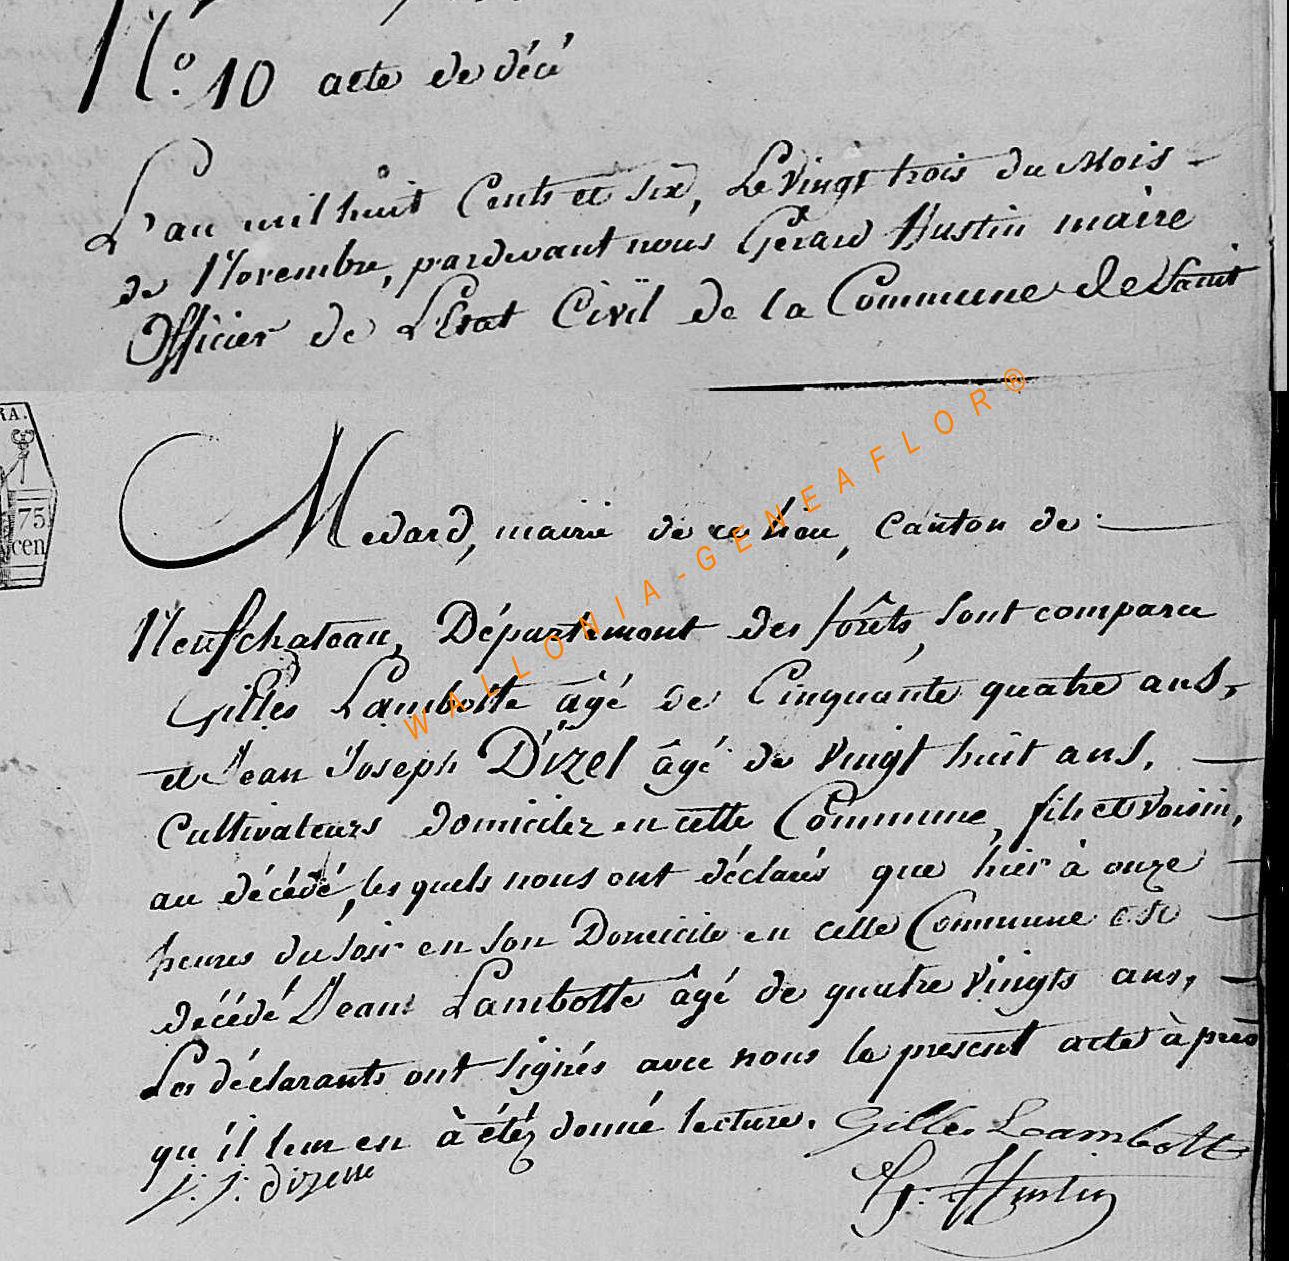 N.º 10 acte de décé
L'an mil huit Cents et six, Le vingt trois du Mois -
de Novembre, pardevant nous Gérard Hustin maire
Officier de L'Etat Civil de la Commune de Saint
RA.
75
cen
Medard, mairie de ce lieu, canton de
Neufchateau, Département des forêts, sont comparu
Gilles Lambotte âgé de Cinquante quatre ans,
et Jean Joseph Dizel âgé de vingt huit ans,
Cultivateurs domicilez en cette Commune, fils et voisin,
au décédé, les quels nous ont déclarés que hier à onze
heures du soir en son Domicile en cette Commune est
décédé Jean Lambotte âgé de quatre vingts ans,
Les déclarants ont signés avec nous le present acte àprès
qu'il leur en à étéz donné lecture. Gilles Lambotte
j: j: dizelle
G: Hustin
WALLONIA-GENEAFLOR®